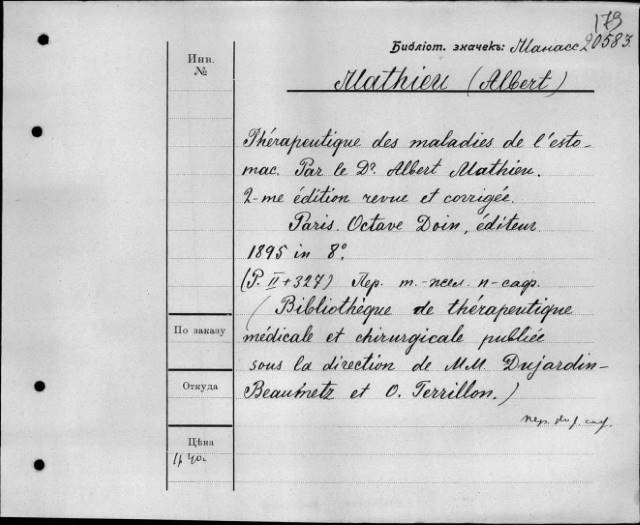 179
Библіот. значекъ: Манасс 20583.
Инв. №
Mathieu (Albert)
Thérapeutique des maladies de l'esto-
mac. Par le Dr. Albert Mathieu.
2-me édition revue et corrigée.
Paris. Octave Doin, éditeur
1895 in 8°.
(P. II+327) Пер. т.-жел. п-саф.
(Bibliothèque de thérapeutique
По заказу
médicale et chirurgicale publiée
sous la direction de M.M. Dujardin-
Откуда
Beaumetz et O. Terrillon.)
Цѣна